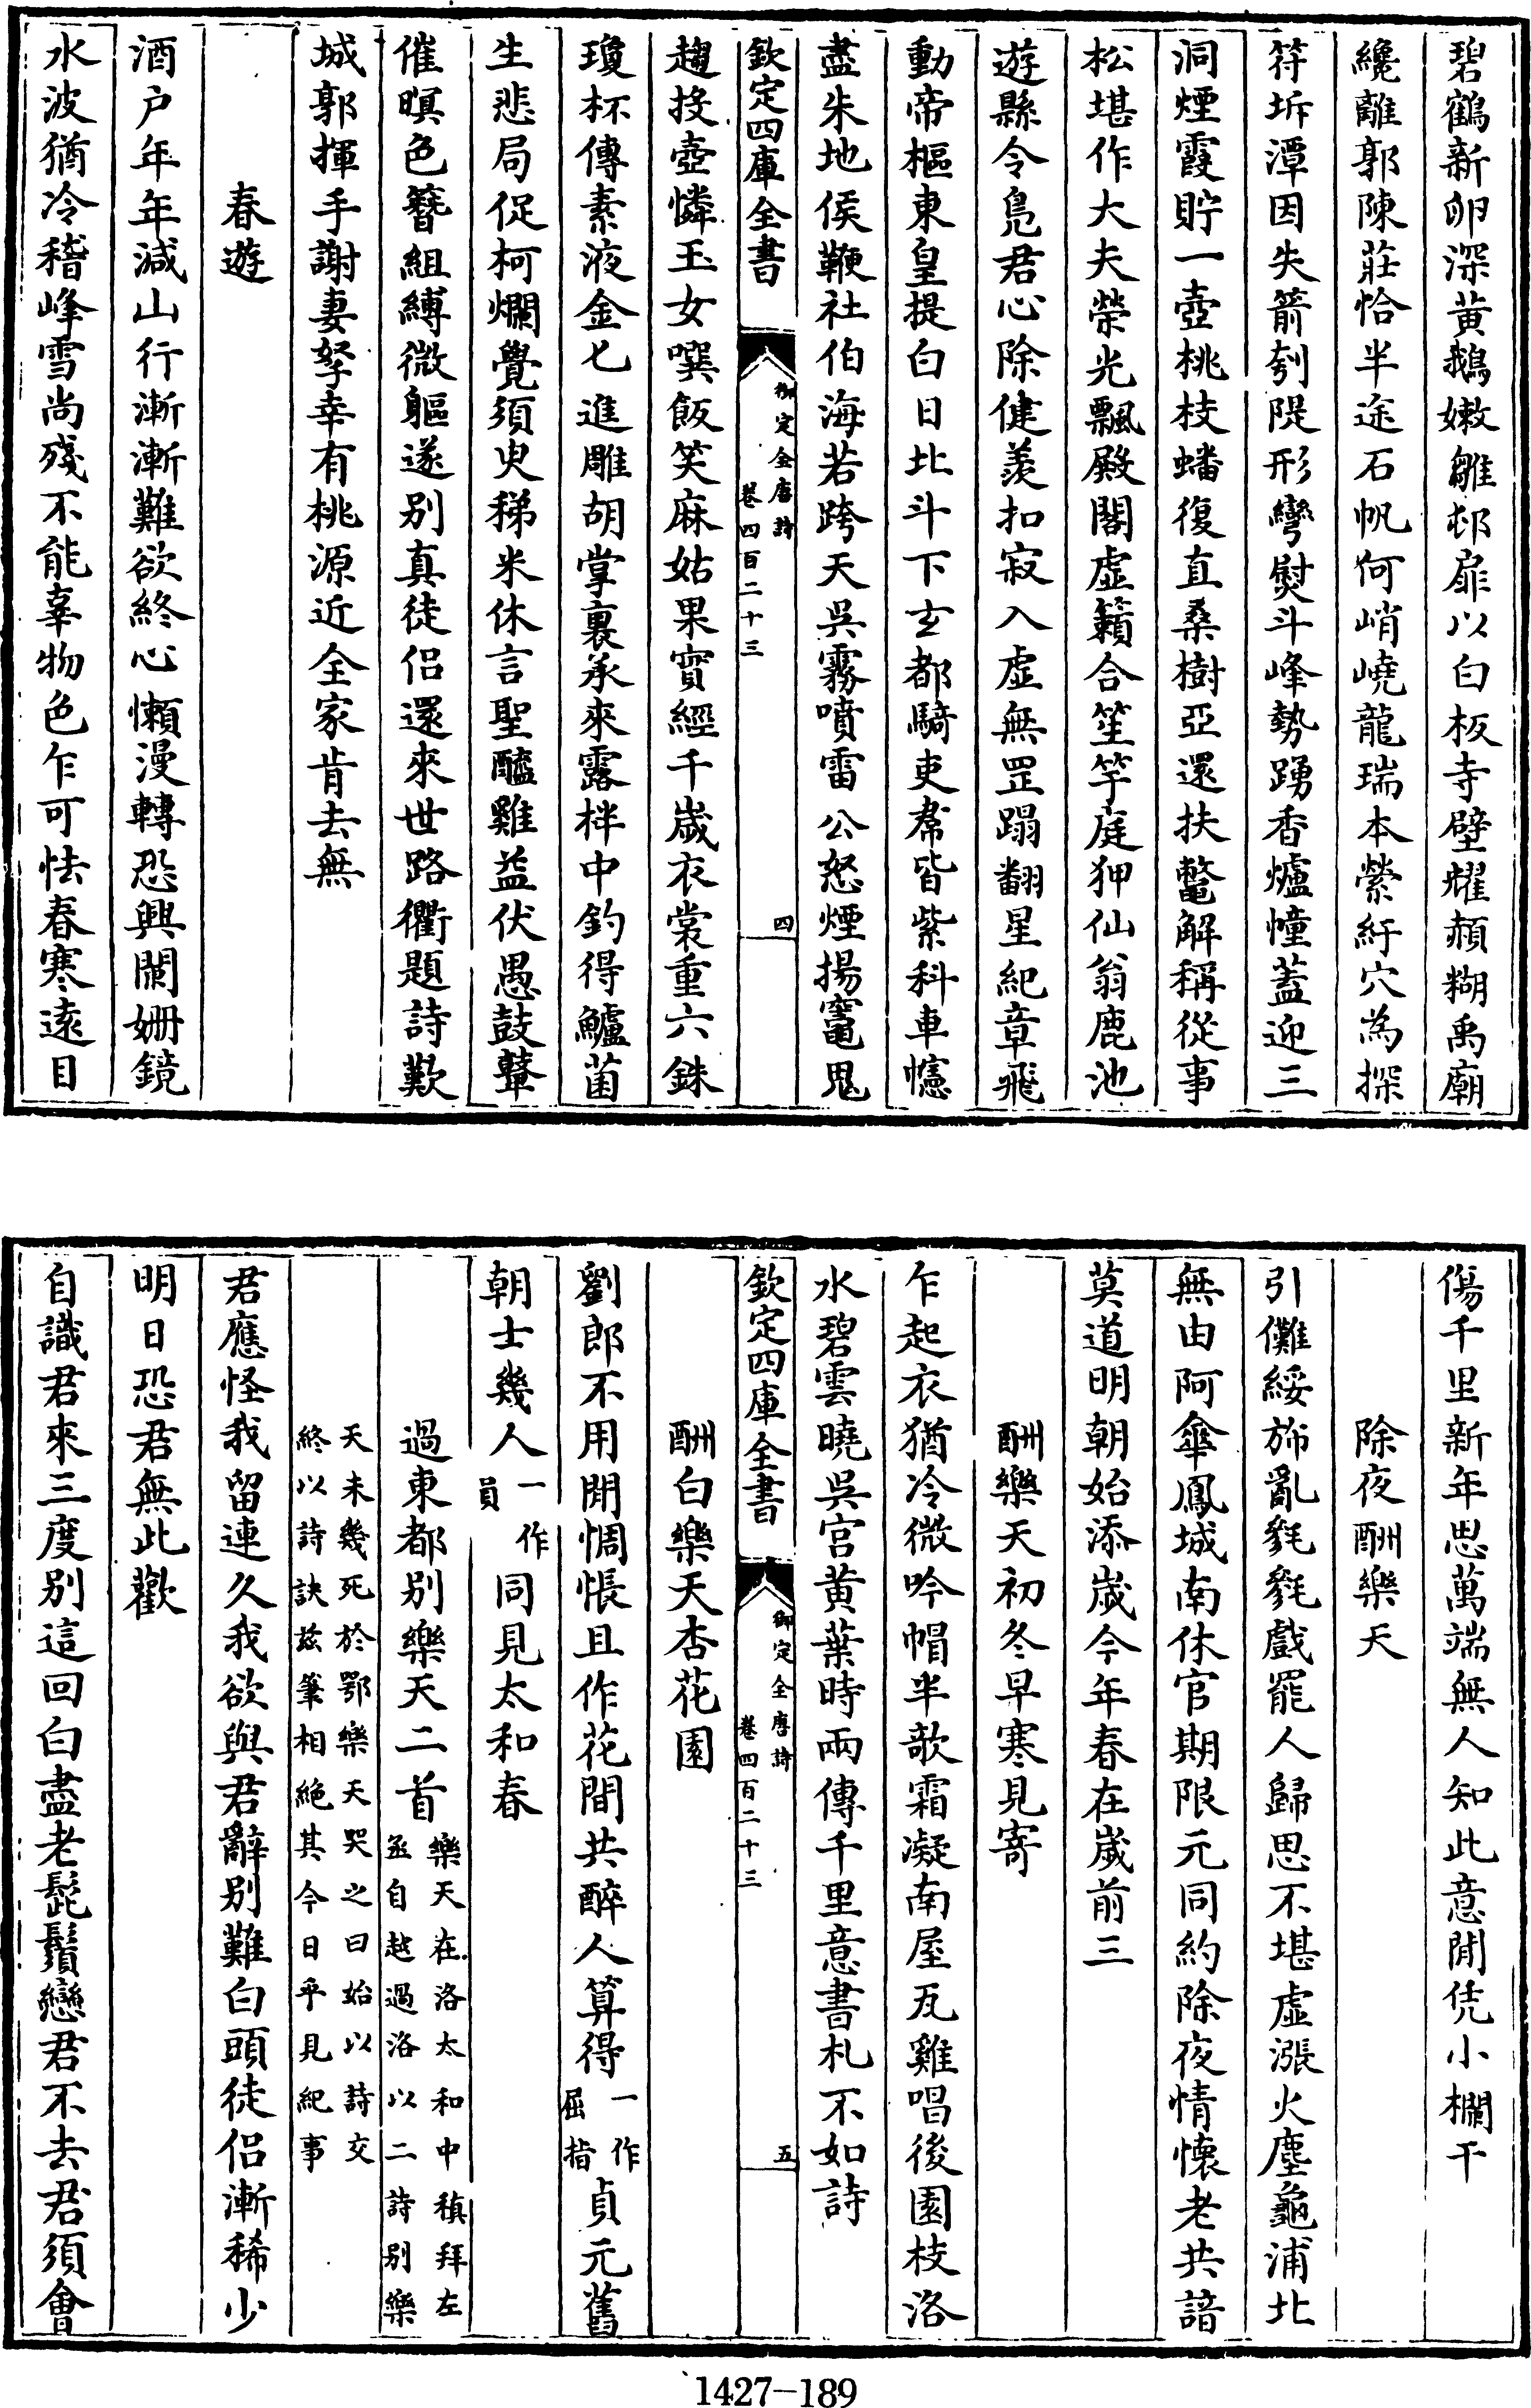 碧鶴新卵深黄鵝嫩雛邨扉以白板寺壁耀頳糊禹廟
纔離郭陳莊恰半途石帆何峭嶢龍瑞本縈紆穴為探
符坼潭因失箭刳隄形彎熨斗峰勢踴香爐幢蓋迎三
洞煙霞貯一壺桃枝蟠復直桑樹亞還扶鼈解稱從事
松堪作大夫榮光飄殿閣虛籟合笙竽庭狎仙翁鹿池
遊縣令鳧君心除健羨扣寂入虛無罡蹋翻星紀章飛
動帝樞東皇提白日北斗下玄都騎吏裙皆紫科車幰
盡朱地侯鞭社伯海若跨天吳霧噴雷公怒煙揚竈鬼
欽定四庫全書
御定全唐詩
卷四百二十三
四
趨投壺憐玉女噀飯笑麻姑果實經千歲衣裳重六銖
瓊杯傳素液金匕進雕胡掌裏承來露柈中釣得鱸菌
生悲局促柯爛覺須臾稊米休言聖醯雞益伏愚鼓鼙
催暝色簪組縛微軀遂别真徒侣還來世路衢題詩歎
城郭揮手謝妻孥幸有桃源近全家肯去無
春遊
酒户年年減山行漸漸難欲終心懶漫轉恐興闌姍鏡
水波猶冷稽峰雪尚殘不能辜物色乍可怯春寒遠目
傷千里新年思萬端無人知此意閒凭小欄干
除夜酬樂天
引儺綏旆亂毿毿戲罷人歸思不堪虛漲火塵龜浦北
無由阿傘鳳城南休官期限元同約除夜情懷老共諳
莫道明朝始添歲今年春在歲前三
酬樂天初冬早寒見寄
乍起衣猶冷微吟帽半欹霜凝南屋瓦雞唱後園枝洛
水碧雲曉吳宫黄葉時兩傳千里意書札不如詩
欽定四庫全書
御定全唐詩
卷四百二十三
五
酬白樂天杏花園
劉郎不用閒惆悵且作花間共醉人算得一作屈指貞元舊
朝士幾人一作員同見太和春
過東都别樂天二首樂天在洛太和中稹拜左丞自越過洛以二詩别樂
天未幾死於鄂樂天哭之曰始以詩交終以詩訣兹筆相絶其今日乎見紀事
君應怪我留連久我欲與君辭别難白頭徒侣漸稀少
明日恐君無此歡
自識君來三度别這回白盡老髭鬚戀君不去君須會
1427-189